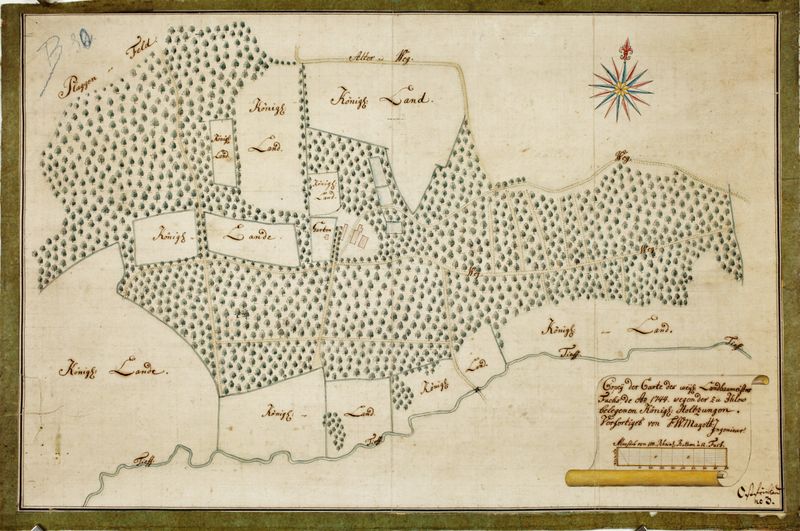 B 30
Plaggen - Feld
Alter Weg.
Königl
Land.
Königl Land.
Königl
Land.
Königl
Land.
Königl - Lande.
Garten
Weg.
Weg
Weg.
Königl Lande.
Königl - Land
Königl Land.
Königl - Land.
Tieff.
Tieff.
Tieff
Tieff
Copey der Carte des weyl Landbaumeisters
Fuchs de Ao 1744. wegen der zu Ihlow
belegenen Königl Holtzungen.
Verfertiget von
Ingenieur.
Maasstab von 100 Rheinl. Ruthen a 12 Fuss.
Ostfriesland
no 3.